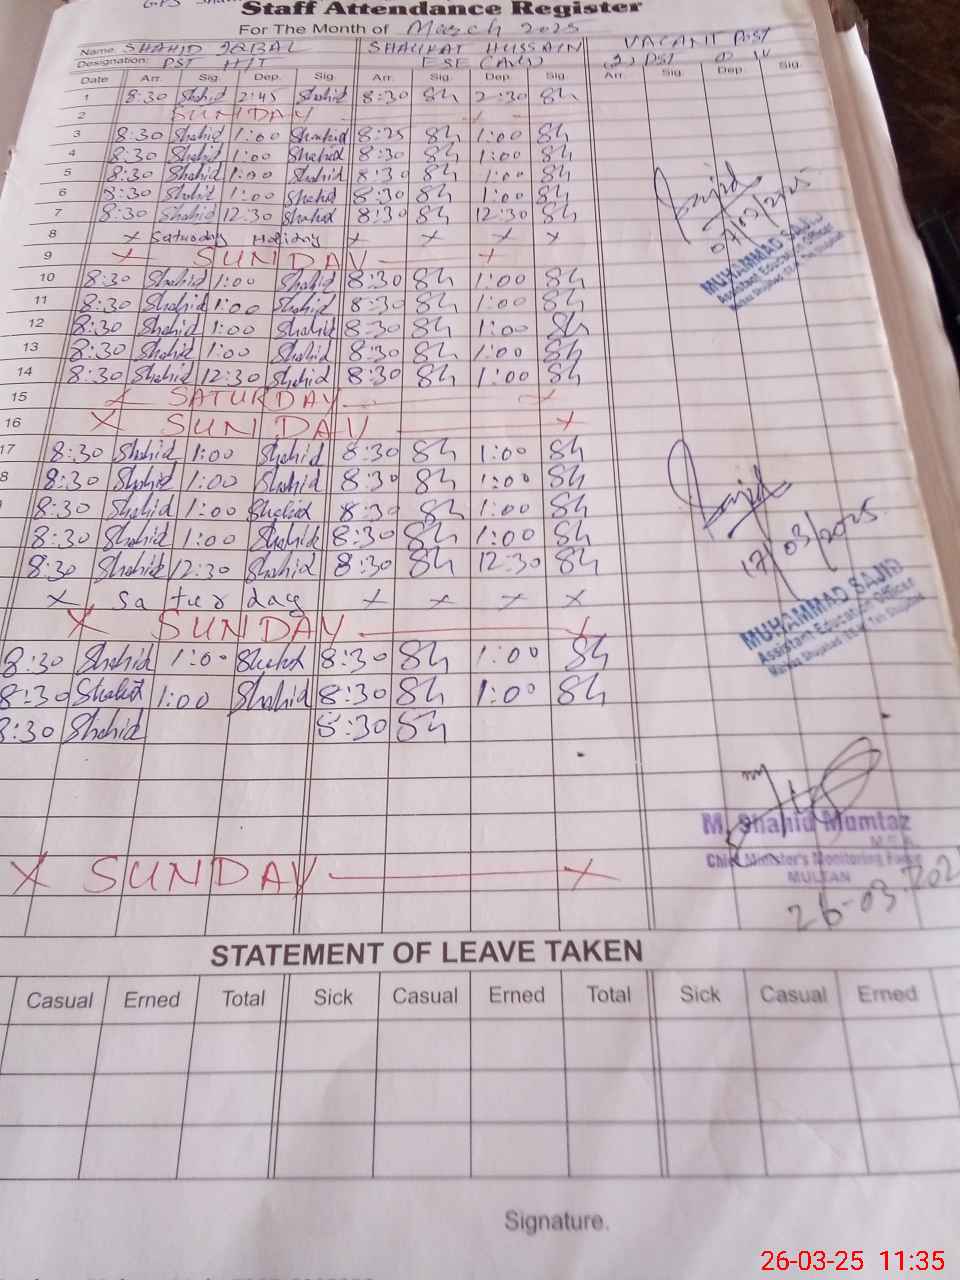 Staff Attendance Register
For The Month of March 2025
Name. SHAHID IQBAL SHAUKAT HUSSAIN VACANT POST
Designation: PST H/T ESE PST
Date Arr. Sig. Dep. Sig. Arr. Sig. Dep. Sig. Arr. Sig. Dep. Sig.
1 8:30 Shahid 2:45 Shahid 8:30 Sh 2:30 Sh
2 SUNDAY
3 8:30 Shahid 1:00 Shahid 8:25 Sh 1:00 Sh
4 8:30 Shahid 1:00 Shahid 8:30 Sh 1:00 Sh
5 8:30 Shahid 1:00 Shahid 8:30 Sh 1:00 Sh
6 8:30 Shahid 1:00 Shahid 8:30 Sh 1:00 Sh
7 8:30 Shahid 12:30 Shahid 8:30 Sh 12:30 Sh
8 x Saturday Holiday x x x x
9 x SUNDAY x
10 8:30 Shahid 1:00 Shahid 8:30 Sh 1:00 Sh
11 8:30 Shahid 1:00 Shahid 8:30 Sh 1:00 Sh
12 8:30 Shahid 1:00 Shahid 8:30 Sh 1:00 Sh
13 8:30 Shahid 1:00 Shahid 8:30 Sh 1:00 Sh
14 8:30 Shahid 12:30 Shahid 8:30 Sh 1:00 Sh
15 x SATURDAY x
16 x SUNDAY x
17 8:30 Shahid 1:00 Shahid 8:30 Sh 1:00 Sh
8 8:30 Shahid 1:00 Shahid 8:30 Sh 1:00 Sh
8:30 Shahid 1:00 Shahid 8:30 Sh 1:00 Sh
8:30 Shahid 1:00 Shahid 8:30 Sh 1:00 Sh
8:30 Shahid 12:30 Shahid 8:30 Sh 12:30 Sh
x Saturday x x x x
x SUNDAY x
8:30 Shahid 1:00 Shahid 8:30 Sh 1:00 Sh
8:30 Shahid 1:00 Shahid 8:30 Sh 1:00 Sh
8:30 Shahid 8:30 Sh
x SUNDAY x
Sajid
07/03/2025
MUHAMMAD SAJID
Assistant Education Officer
Sajid
17/03/2025
MUHAMMAD SAJID
Assistant Education Officer
M. Shahid Mumtaz
M.E.A
Chief Minister's Monitoring Force
MULTAN
26-03-202
STATEMENT OF LEAVE TAKEN
Casual Erned Total Sick Casual Erned Total Sick Casual Erned
Signature.
26-03-25 11:35